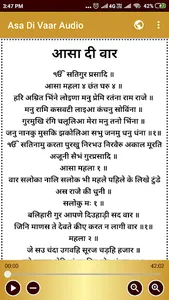 3:47 PM
4G
76
Asa Di Vaar Audio
आसा दी वार
ੴ सतिगुर प्रसादि ॥
आसा महला ४ छंत घरु ४ ॥
हरि अम्रित भिंने लोइणा मनु प्रेमि रतंना राम राजे ॥
मनु रामि कसवटी लाइआ कंचनु सोविंना ॥
गुरमुखि रंगि चलूलिआ मेरा मनु तनो भिंना ॥
जनु नानकु मुसकि झकोलिआ सभु जनमु धनु धंना ॥१॥
ੴ सतिनामु करता पुरखु निरभउ निरवैरु अकाल मूरति
अजूनी सैभं गुरप्रसादि ॥
आसा महला १ ॥
वार सलोका नालि सलोक भी महले पहिले के लिखे टुंडे
अस राजै की धुनी ॥
सलोकु मः १ ॥
बलिहारी गुर आपणे दिउहाड़ी सद वार ॥
जिनि माणस ते देवते कीए करत न लागी वार ॥१॥
महला २ ॥
जे सउ चंदा उगवहि सूरज चड़हि हजार ॥
00:00
42:02